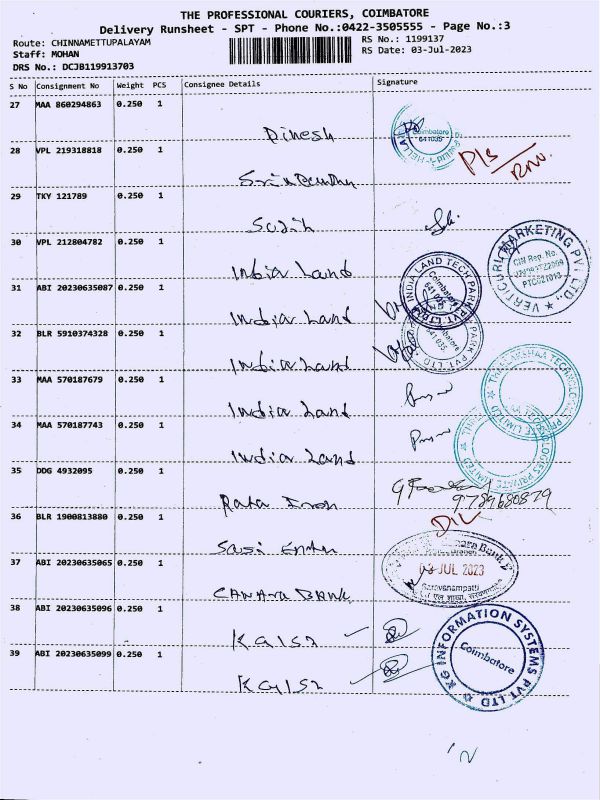 THE PROFESSIONAL COURIERS, COIMBATORE
Delivery Runsheet - SPT - Phone No.:0422-3505555 - Page No.:3
Route: CHINNAMETTUPALAYAM
RS No.: 1199137
Staff: MOHAN
RS Date: 03-Jul-2023
DRS No.: DCJB119913703
S No Consignment No Weight PCS Consignee Details Signature
27 MAA 860294863 0.250 1
Dinesh
Coimbatore
641035
28 VPL 219318818 0.250 1
29 TKY 121789 0.250 1
30 VPL 212804782 0.250 1
India Land
VERTICURL MARKETING PVT LTD
CIN Reg. No.
31 ABI 20230635087 0.250 1
India Land
INDIA LAND TECH PARK PVT. LTD.
Coimbatore
641 035
32 BLR 5910374328 0.250 1
India Land
Coimbatore
641 035
33 MAA 570187679 0.250 1
India Land
34 MAA 570187743 0.250 1
India Land
35 DDG 4932095 0.250 1
9789680879
36 BLR 1900813880 0.250 1
37 ABI 20230635065 0.250 1
CANARA BANK
03 JUL 2023
Saravanampatti
38 ABI 20230635096 0.250 1
KGISL
KG INFORMATION SYSTEMS PVT LTD
Coimbatore
39 ABI 20230635099 0.250 1
KGISL